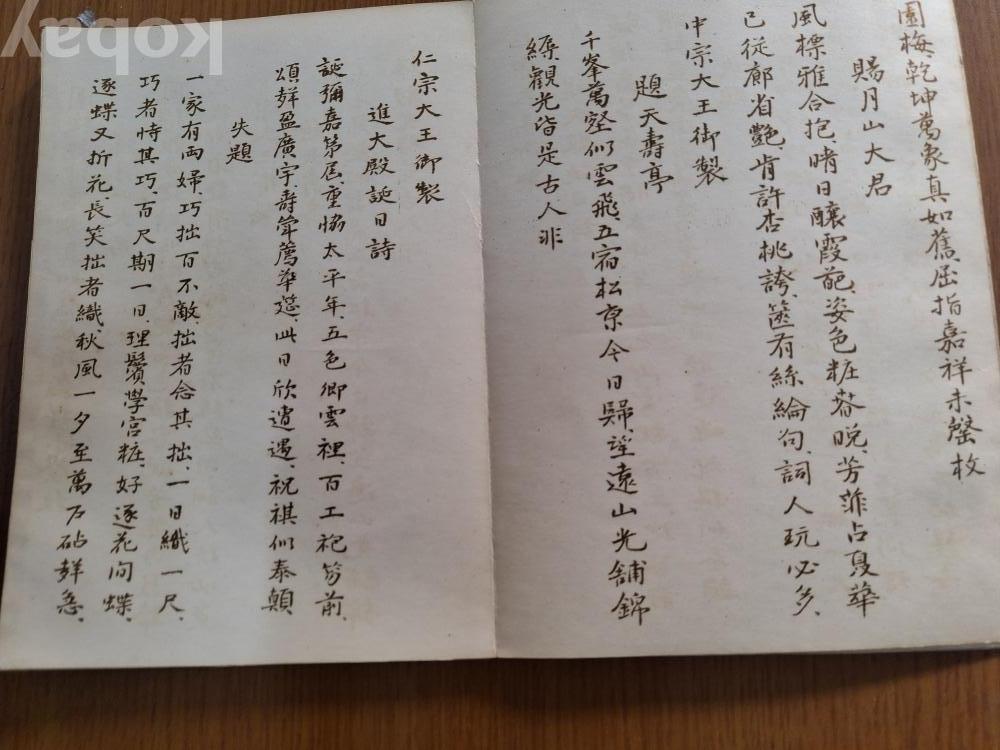 園梅、乾坤萬象真如舊、屈指嘉祥未罄枚
賜月山大君
風標雅合抱、晴日釀霞葩、姿色粧春晩、芳菲占夏華
已從廊省艶、肯許杏桃誇、篋有絲綸句、詞人玩必多、
中宗大王御製
題天壽亭
千峯萬壑似雲飛、五宿松京今日歸、望遠山光鋪錦
繰觀光皆是古人非
仁宗大王御製
進大殿誕日詩
誕彌嘉第屆重恊太平年、五色卿雲裡、百工袍笏前、
頌盈廣宇、壽薦華筵、此日欣遭遇、祝祺似泰顛
失題
一家有両婦、巧拙百不敵、拙者念其拙、一日織一尺、
巧者恃其巧、百尺期一日、理鬢學宮粧、好逐花问蝶、
逐蝶又折花、長笑拙者織、秋風一夕至、萬户砧聲急、
kobay